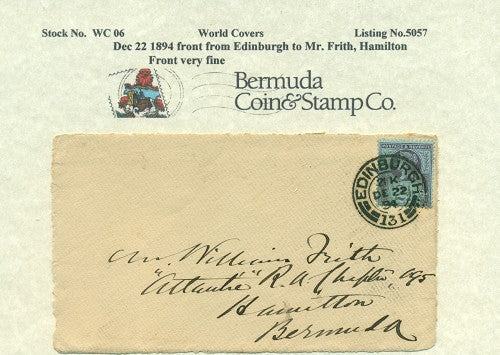 Stock No. WC 06 World Covers Listing No.5057
Dec 22 1894 front from Edinburgh to Mr. Frith, Hamilton
Front very fine
Bermuda
Coin&Stamp Co.
POSTAGE & REVENUE
EDINBURGH
2 K
DE 22
94
131
Mr. William Frith
"Atlantic" R. A. Chapter
Hamilton
Bermuda